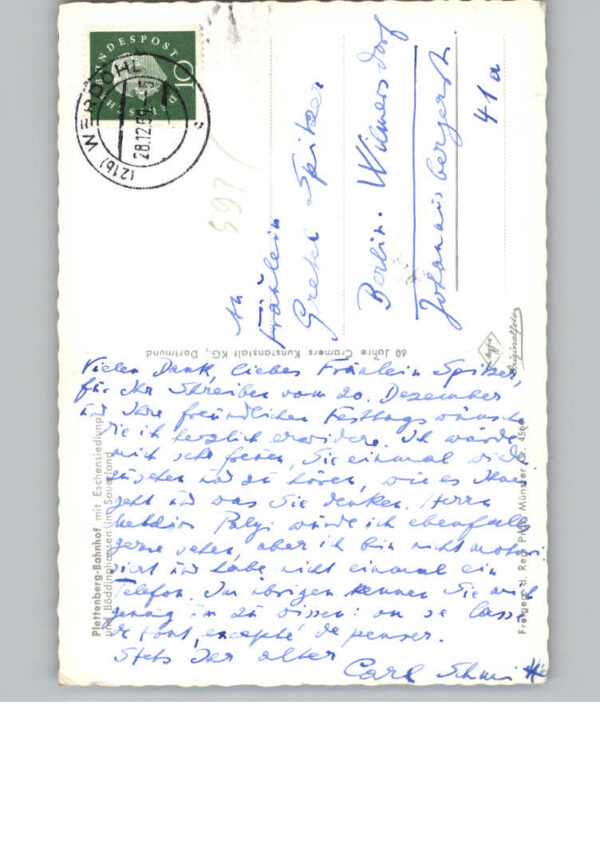 DEUTSCHE BUNDESPOST
10
(21b) WERDOHL
28.12.59.-5
597
An
Fräulein
Gretel Spitzer
Berlin-Wilmersdorf
Johannisbergerstr.
41a
60 Jahre Cramers Kunstanstalt KG., Dortmund
Agfa
Originalfoto
Vielen Dank, liebes Fräulein Spitzer,
für Ihr Schreiben vom 20. Dezember
und Ihre freundlichen Festtagswünsche
die ich herzlich erwidere. Ich würde
mich sehr freuen, Sie einmal wieder
zusehen und zu hören, wie es Ihnen
geht und was Sie denken. Herrn
würde ich ebenfalls
gerne sehen, aber ich bin nicht motori
siert und habe nicht einmal ein
Telefon. Im übrigen kennen Sie mich
genug um zu wissen: on se lasse
de tout, excepté de penser.
Stets Ihr alter
Carl Schmitt
Plettenberg-Bahnhof mit Eschensiedlung
und Böddinghausen im Sauerland
Freigeg. d. Reg. Präs. Münster Nr.